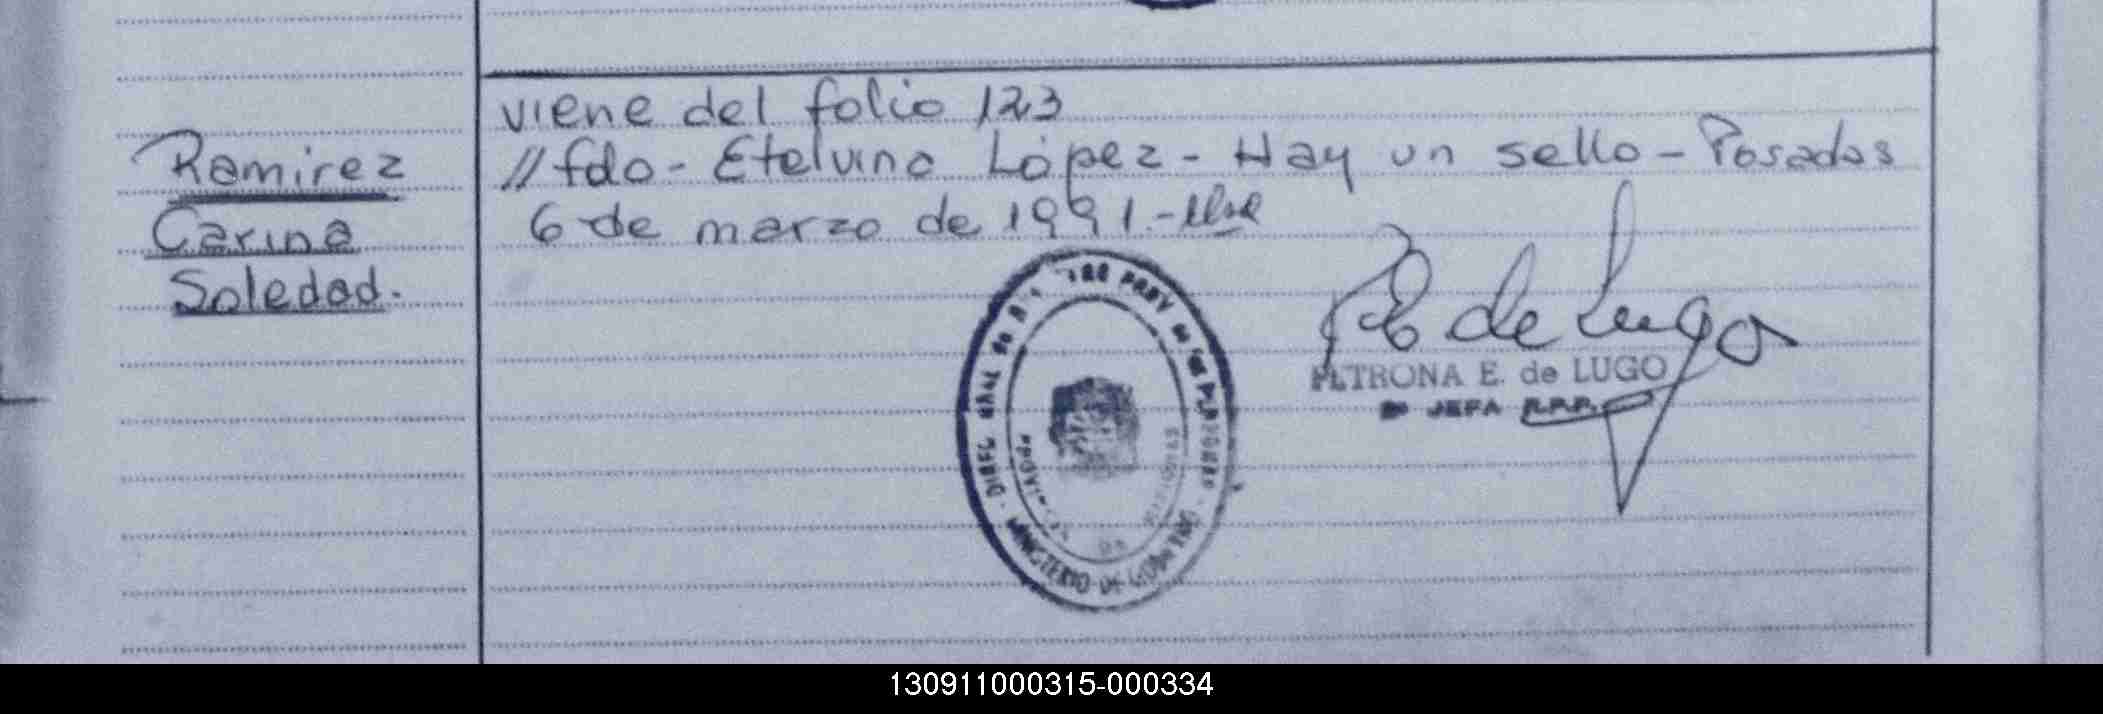 Ramirez
Carina
Soledad.
viene del folio 123
//fdo - Etelvino López - Hay un sello - Posadas
6 de marzo de 1991.-
E de Lugo
PETRONA E. de LUGO
JEFA R.P.P.
MINISTERIO DE GOBIERNO
130911000315-000334